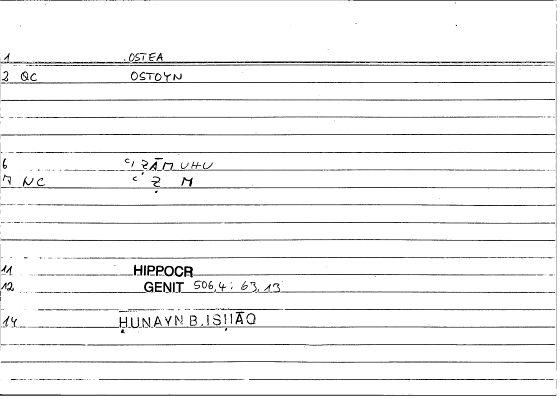 1 OSTEA
2 QC OSTOYN
6 ʿIẒĀMUHU
7 NC ʿẒM
11 HIPPOCR
12 GENIT 506,4; 63,13
14 ḤUNAYN B. ISḤĀQ